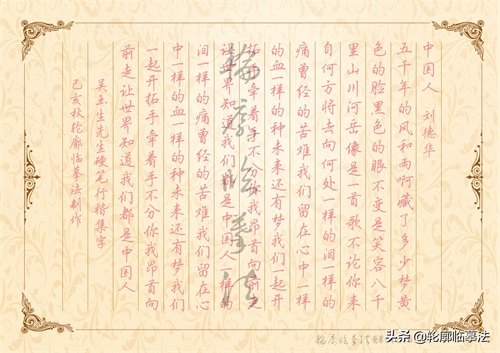 中国人 刘德华
五千年的风和雨啊藏了多少梦黄
色的脸黑色的眼不变是笑容八千
里山川河岳像是一首歌不论你来
自何方将去向何处一样的泪一样的
痛曾经的苦难我们留在心中一样
的血一样的种未来还有梦我们一起开
拓手牵着手不分你我昂首向前走
让世界知道我们都是中国人一样的
泪一样的痛曾经的苦难我们留在心
中一样的血一样的种未来还有梦我们
一起开拓手牵着手不分你我昂首向
前走让世界知道我们都是中国人
吴玉生先生硬笔行楷集字
己亥秋轮廓临摹法制作
轮廓临摹法
轮廓临摹法
头条 @轮廓临摹法